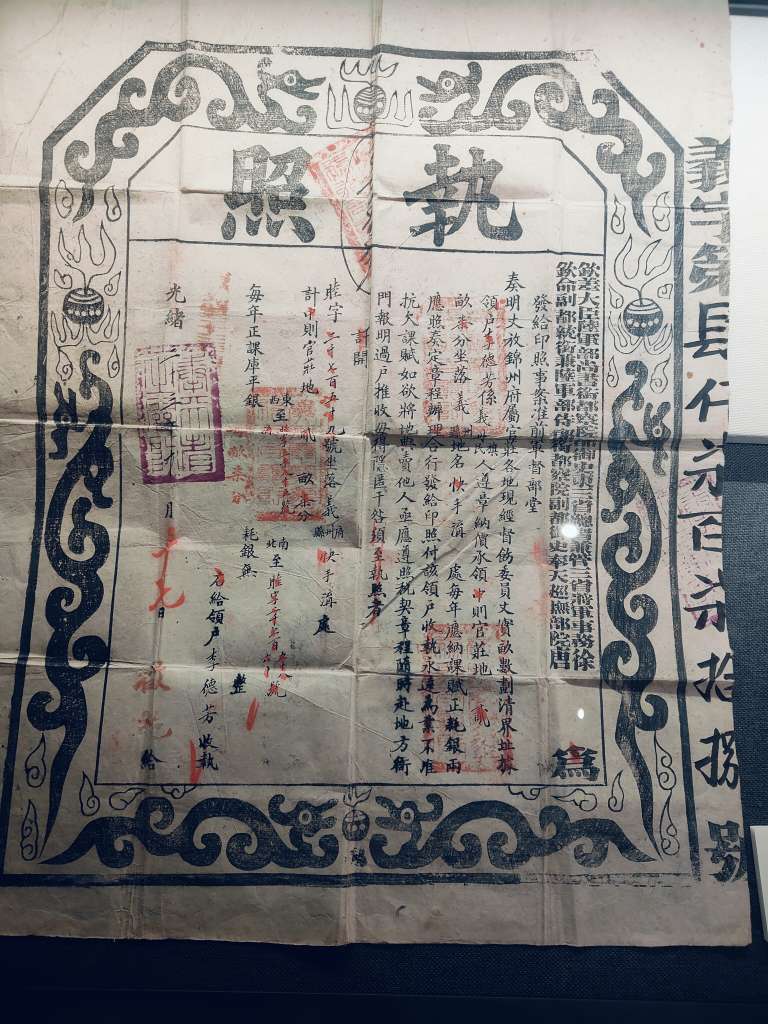 執照
義字第長仟柒百柒拾捌號
欽差大臣陸軍部尚書銜都察院都御史東三省總督兼管三省將軍事務徐
欽命副都統銜兼陸軍部侍郎銜都察院副都御史奉天巡撫部院唐
為
發給印照事案准前軍督部堂
奏明丈放錦州府屬官莊各地現經督飭委員丈實畝數劃清界址據
領戶李德芳係義 民人遵章納價承領中則官莊地 貳
畝柒分坐落義州 地名快手溝 處每年應納課賦正耗銀兩
應照奏定章程辦理合行發給印照付該領戶收執永遠為業不准
抗欠課賦如欲將地典賣他人亟應遵照稅契章程隨時赴地方衙
門報明過戶推收毋得隱匿干咎須至執照者
計開
睦字 七百五十九號坐落義州 快手溝處
計中則官莊地 貳 畝柒分
東至
西至
南
北至睦字
每年正課庫平銀 耗銀無 整
右給領戶李德芳收執
光緒 月十七 給